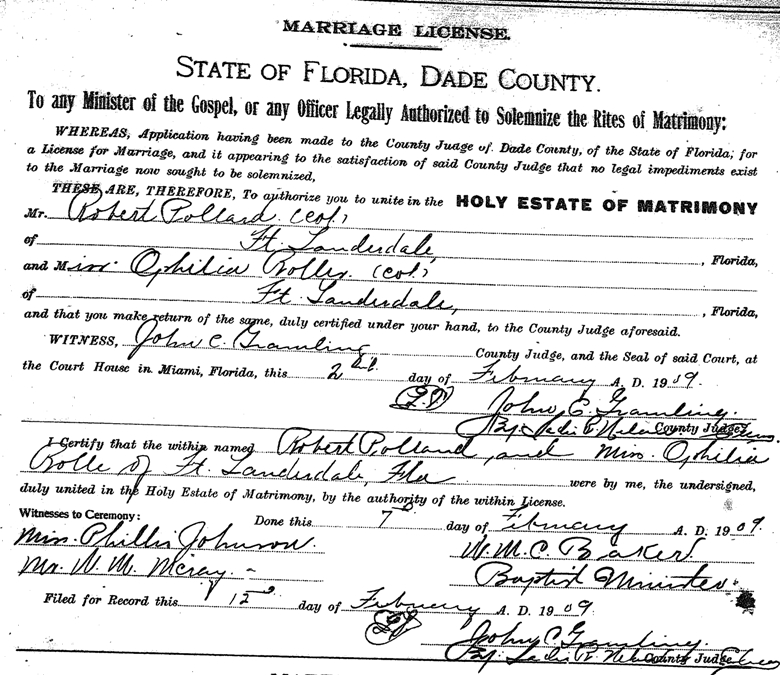 MARRIAGE LICENSE.
STATE OF FLORIDA, DADE COUNTY.
To any Minister of the Gospel, or any Officer Legally Authorized to Solemnize the Rites of Matrimony:
WHEREAS, Application having been made to the County Judge of Dade County, of the State of Florida, for
a License for Marriage, and it appearing to the satisfaction of said County Judge that no legal impediments exist
to the Marriage now sought to be solemnized,
THESE ARE, THEREFORE, To authorize you to unite in the HOLY ESTATE OF MATRIMONY
Mr. Robert Pollard (col)
of Ft. Lauderdale, , Florida,
and Miss Ophilia Rolle (col)
of Ft Lauderdale, , Florida,
and that you make return of the same, duly certified under your hand, to the County Judge aforesaid.
WITNESS, John C. Gramling County Judge, and the Seal of said Court, at
the Court House in Miami, Florida, this 2nd day of February A. D. 1909.
John C. Gramling.
By County Judge
I Certify that the within named Robert Polland, and Miss Ophilia
Rolle of Ft. Lauderdale, Fla were by me, the undersigned,
duly united in the Holy Estate of Matrimony, by the authority of the within License.
Witnesses to Ceremony: Done this 7 day of February A. D. 1909.
Miss Phillis Johnson. W. M. C. Baker
Mr. W. M. Baptist Minister.
Filed for Record this 12 day of February A. D. 1909.
John C. Gramling.
By County Judge